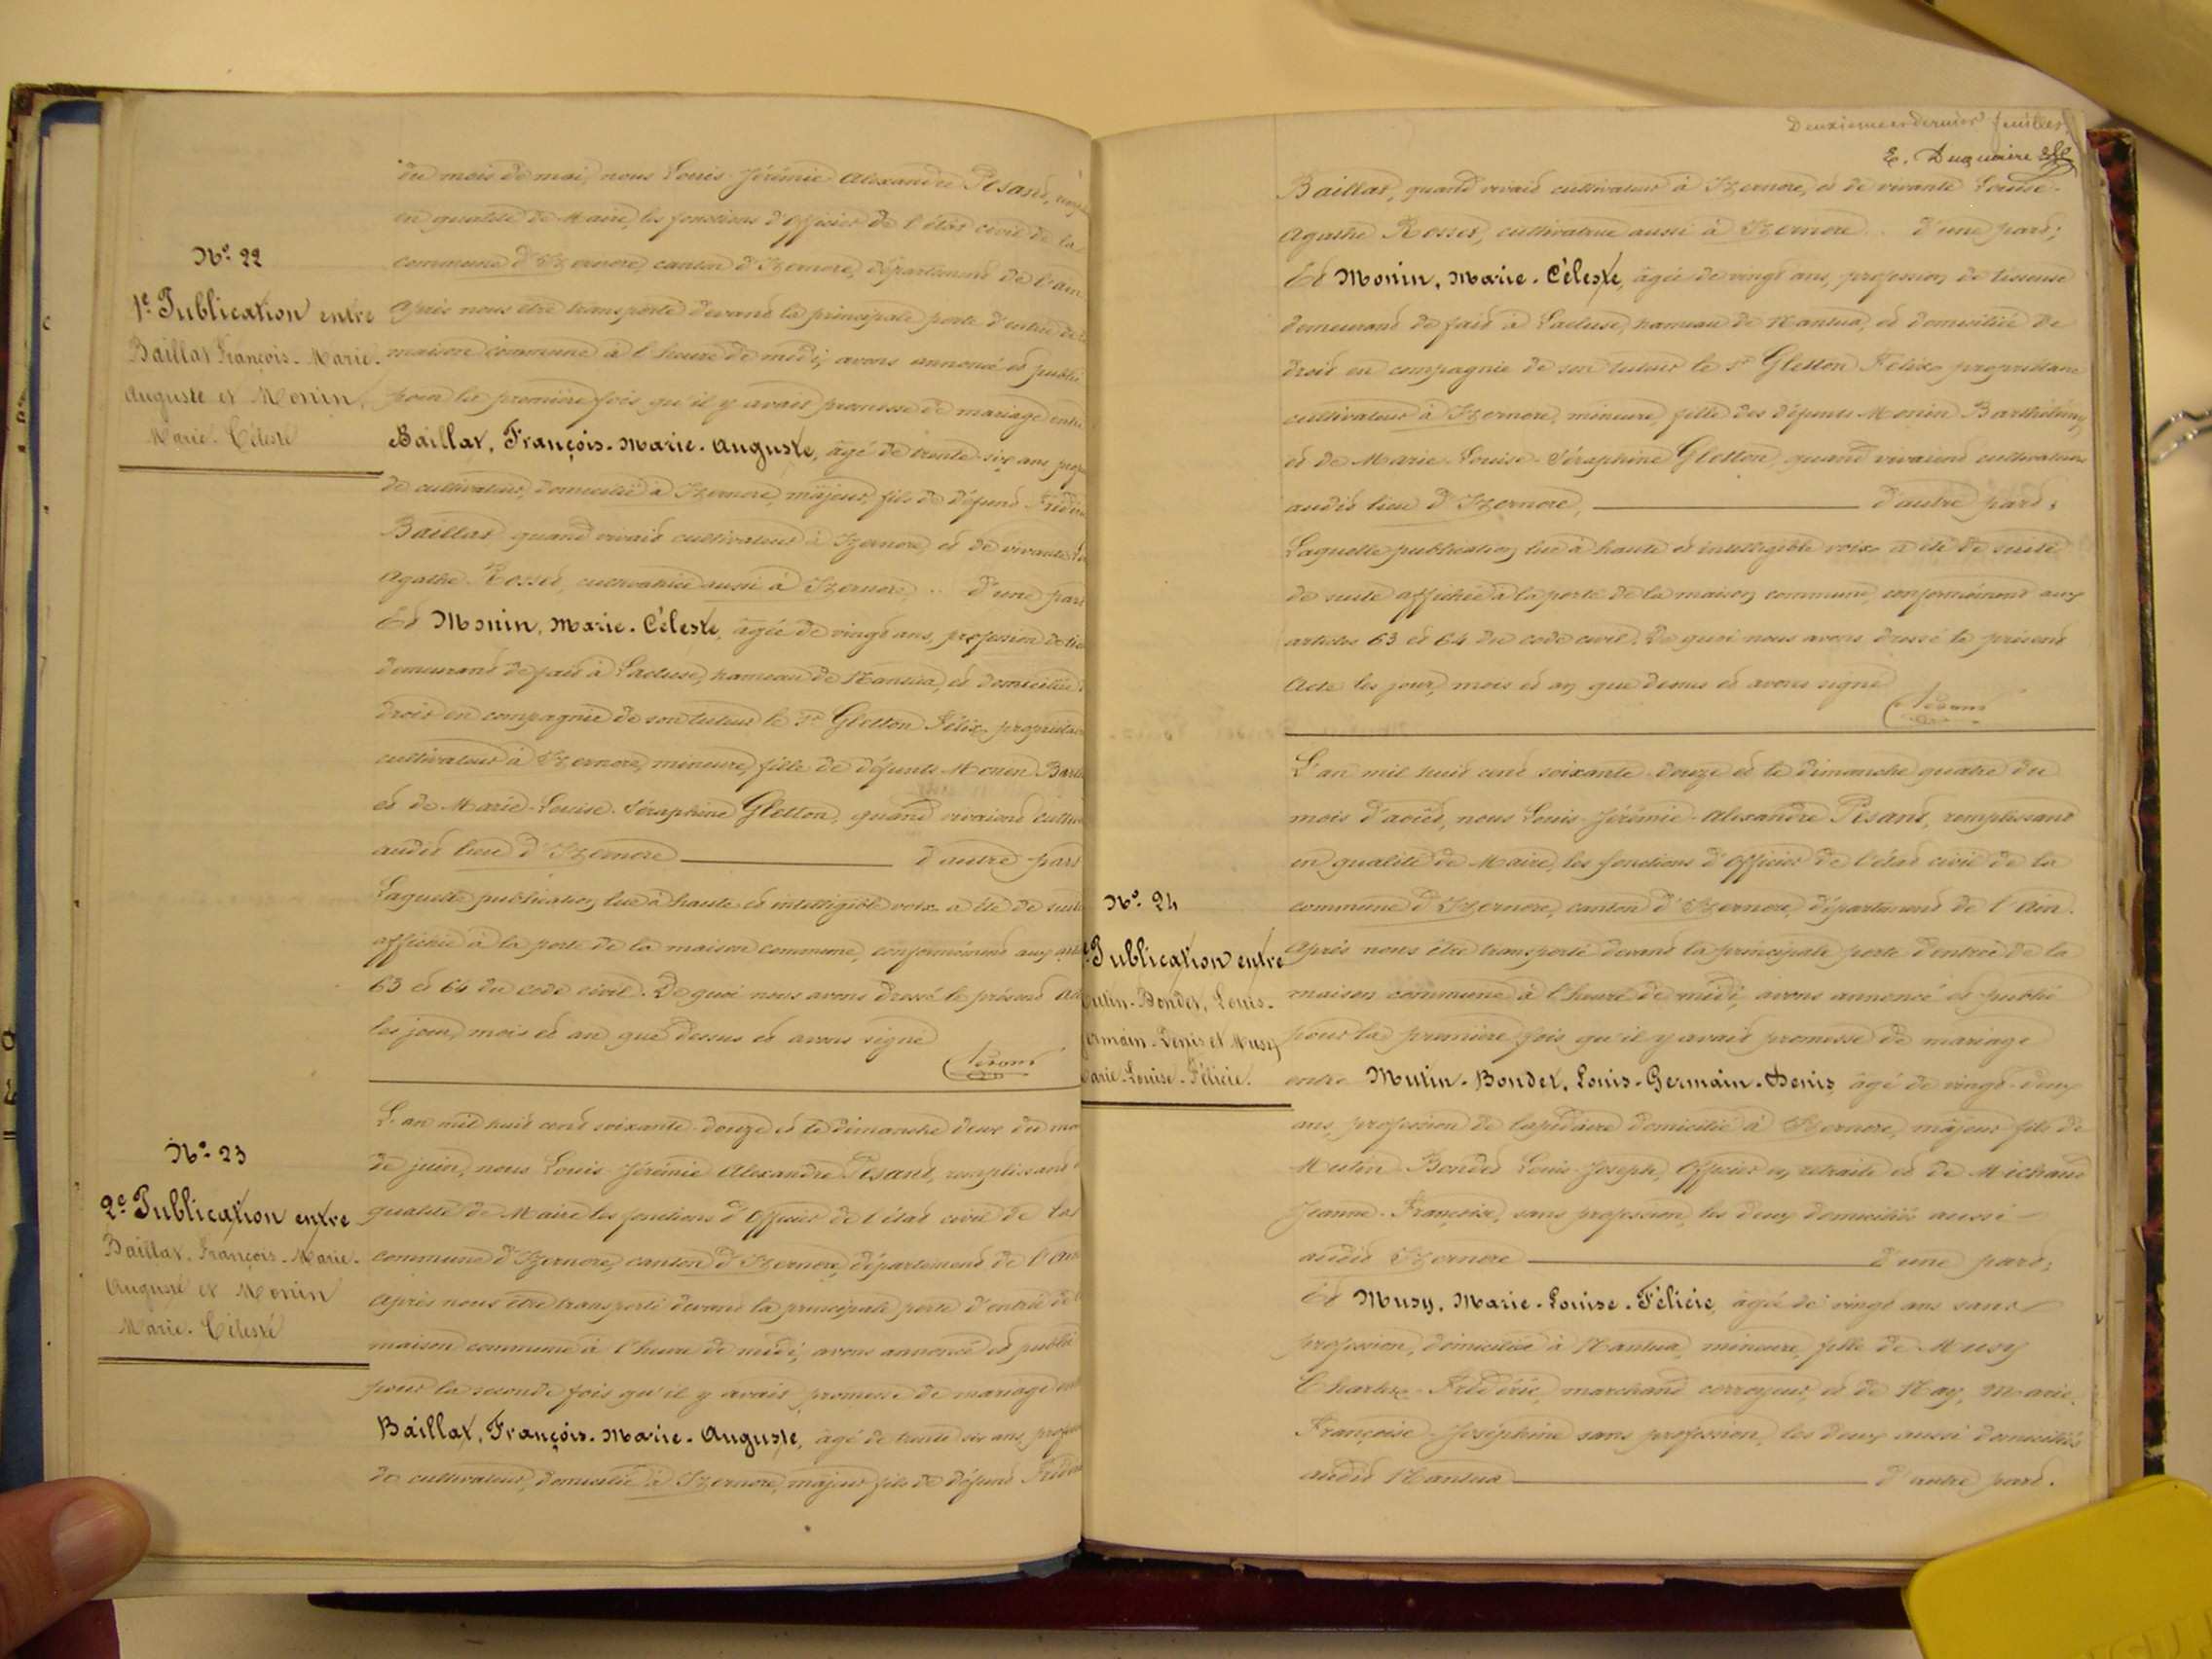 du mois de mai, nous Louis Jérémie Alexandre Pésant,
en qualité de Maire, les fonctions d'officier de l'état civil de la
commune d'Izernore, canton d'Izernore, département de l'ain
Après nous être transporté devant la principale porte d'entrée de
maison commune à l'heure de midi, avons annoncé et publié
pour la première fois qu'il y avait promesse de mariage entre
Baillat, François-Marie-Auguste, âgé de trente-six ans,
de cultivateur, domicilié à Izernore, majeur, fils de défunt
Baillat quand vivait cultivateur à Izernore, et de vivante
Agathe Rosset, cultivatrice aussi à Izernore, .. d'une part
Et Monin, Marie-Céleste, âgée de vingt ans, profession de
demeurant de fait à Lacluse, hameau de Nantua, et domiciliée
droit en compagnie de son tuteur le Sr Gletton Félix,
cultivateur à Izernore, mineure, fille de défunts Monin
et de Marie-Louise-Séraphine Gletton, quand vivaient
audit lieu d'Izernore d'autre part
Laquelle publication lue à haute et intelligible voix a été de suite
affichée à la porte de la maison commune, conformément aux
63 et 64 du code civil. De quoi nous avons dressé le présent
les jour, mois et an que dessus et avons signé
N° 22
1e Publication entre
Baillat François-Marie-
Auguste et Monin,
Marie-Céleste
L'an mil huit cent soixante-douze et le dimanche deux du
de juin, nous Louis Jérémie Alexandre Pésant, remplissant
qualité de Maire les fonctions d'Officier de l'état civil de la
commune d'Izernore, canton d'Izernore, département de l'ain
Après nous être transporté devant la principale porte d'entrée de
maison commune à l'heure de midi, avons annoncé et publié
pour la seconde fois qu'il y avait promesse de mariage
Baillat, François-Marie-Auguste, âgé de trente six ans,
de cultivateur, domicilié à Izernore, majeur fils de défunt
N° 23
2e Publication entre
Baillat, François-Marie-
Auguste et Monin
Marie-Céleste
Deuxième et dernier feuillet
E. Duquaire
Baillat, quand vivait cultivateur à Izernore, et de vivante Louise-
Agathe Rosset, cultivatrice aussi à Izernore .. d'une part;
Et Monin, Marie-Céleste, âgée de vingt ans, profession de tisseuse
demeurant de fait à Lacluse, hameau de Nantua, et domiciliée de
droit en compagnie de son tuteur le Sr Gletton Félix, propriétaire
cultivateur à Izernore, mineure, fille des défunts Monin Barthélemy
et de Marie-Louise-Séraphine Gletton, quand vivaient cultivateurs
audit lieu d'Izernore, d'autre part;
Laquelle publication, lue à haute et intelligible voix a été de suite
de suite affichée à la porte de la maison commune, conformément aux
articles 63 et 64 du code civil. De quoi nous avons dressé le présent
Acte les jour, mois et an que dessus et avons signé
L'an mil huit cent soixante-douze et le dimanche quatre du
mois d'août, nous Louis-Jérémie-Alexandre Pésant, remplissant
en qualité de Maire, les fonctions d'Officier de l'état civil de la
commune d'Izernore, canton d'Izernore, département de l'Ain.
Après nous être transporté devant la principale porte d'entrée de la
maison commune à l'heure de midi, avons annoncé et publié
pour la première fois qu'il y avait promesse de mariage
entre Mutin-Bondet, Louis-Germain-Denis, âgé de vingt-deux
ans, profession de lapidaire domicilié à Izernore, majeur fils de
Mutin Bondet Louis-Joseph, Officier en retraite et de Michaud
Jeanne-Françoise, sans profession, les deux domiciliés aussi
audit Izernore d'une part;
Et Musy, Marie-Louise-Félicie, âgée de vingt ans sans
profession, domiciliée à Nantua, mineure, fille de Musy
Charles-Frédéric, marchand corroyeur, et de Nay, Marie-
Françoise-Joséphine sans profession, les deux aussi domiciliés
audit Nantua d'autre part.
N° 24
Publication entre
utin-Bondet, Louis-
ermain-Denis et Musy
arie-Louise-Félicie.